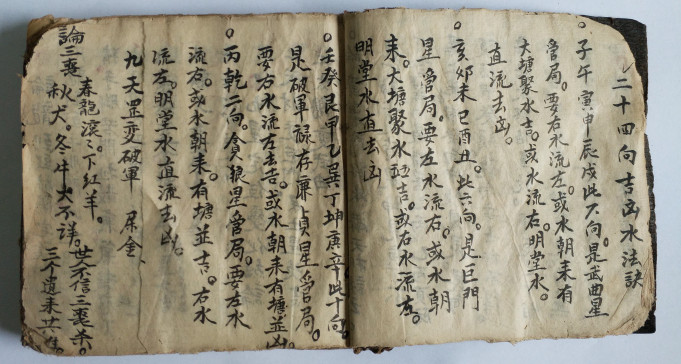 二十四向吉凶水法訣
。子午寅申辰戌此六向。是武曲星
管局。要右水流左。或水朝来有
大塘聚水吉。或水流右。明堂水
直流去凶。
。亥卯未巳酉丑。此六向。是巨門
星管局。要左水流右。或水朝
来。大塘聚水吉。或右水流左。
明堂水直去凶
。壬癸艮甲乙巽丁坤庚辛此十向。
是破軍禄存廉貞星管局。
要右水流左去吉。或水朝来有塘並凶。
丙乾二向。貪狼星管局。要左水
流右。或水朝来。有塘並吉。右水
流左。明堂水直流去凶。
九天罡変破軍 屎金、
論三喪 春龍滾々下紅羊。
秋犬。冬牛大不祥。世人不信三喪煞。
三个週来共